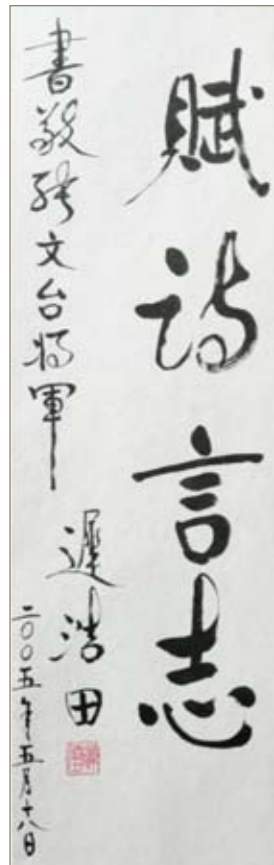 賦诗言志
書敬张文台将軍
遲浩田
二〇〇五年五月十八日